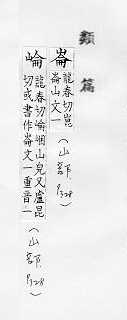 類篇
崙
龍春切崑
崙山文一
(山部 P328)
崘
龍春切崘山皃又盧昆
切或書作崙文一重音一
(山部 P328)